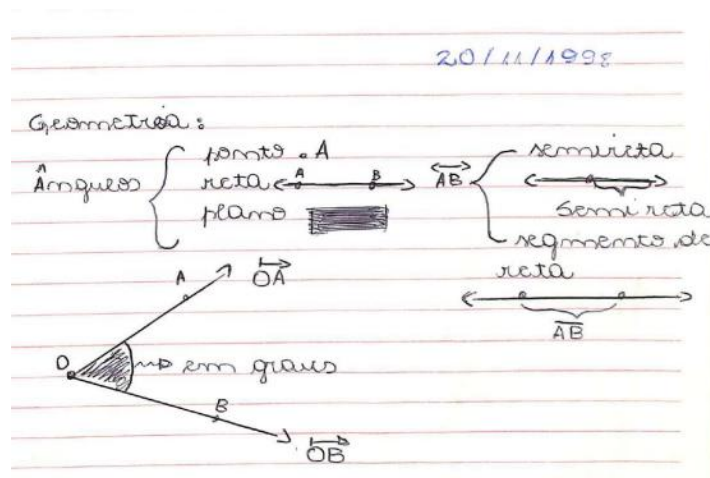 20/11/1998
Geometria:
Ângulos
ponto . A
reta
A B
AB
plano
semireta
semi reta
segmento de
reta
AB
A
OA
O
em graus
B
OB